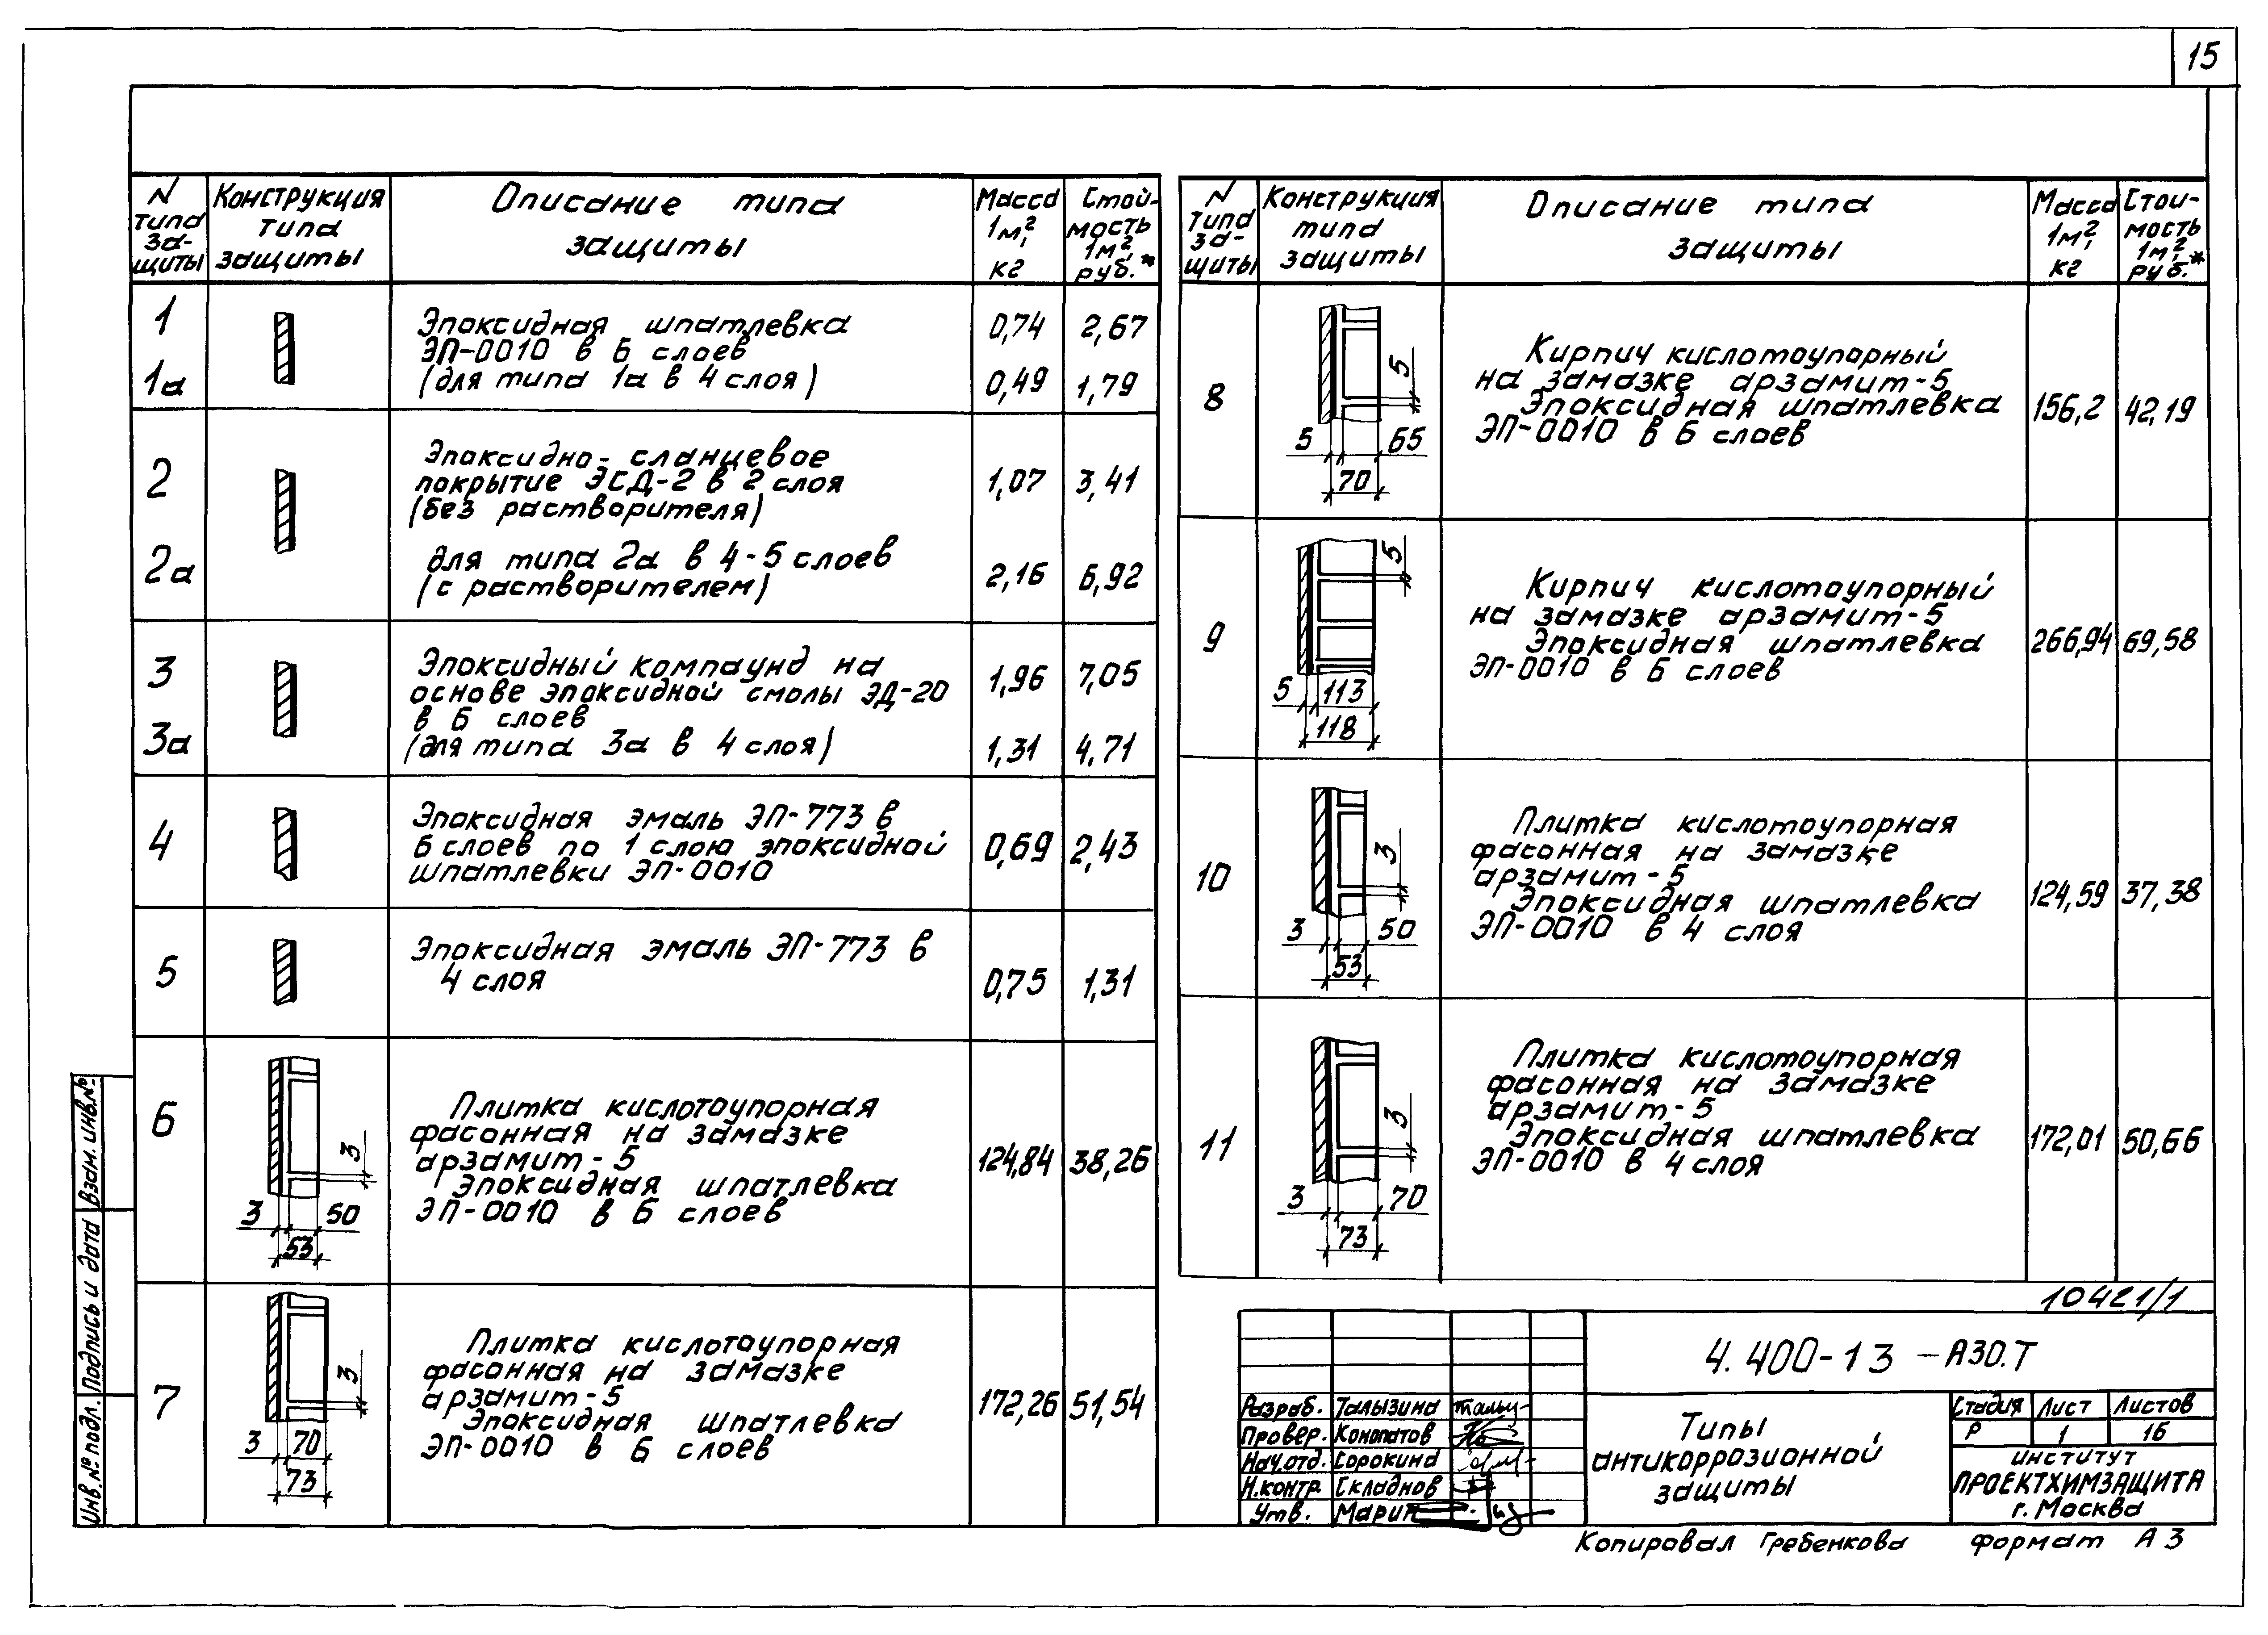 15
N типа защиты
Конструкция типа защиты
Описание типа защиты
Масса 1м², кг
Стоимость 1м², руб.*
1
Эпоксидная шпатлевка
ЭП-0010 в 6 слоев
0,74
2,67
1а
(для типа 1а в 4 слоя)
0,49
1,79
2
Эпоксидно-сланцевое
покрытие ЭСД-2 в 2 слоя
(без растворителя)
1,07
3,41
2а
для типа 2а в 4-5 слоев
(с растворителем)
2,16
6,92
3
Эпоксидный компаунд на
основе эпоксидной смолы ЭД-20
в 6 слоев
1,96
7,05
3а
(для типа 3а в 4 слоя)
1,31
4,71
4
Эпоксидная эмаль ЭП-773 в
6 слоев по 1 слою эпоксидной
шпатлевки ЭП-0010
0,69
2,43
5
Эпоксидная эмаль ЭП-773 в
4 слоя
0,75
1,31
6
3
3
50
53
Плитка кислотоупорная
фасонная на замазке
арзамит-5
Эпоксидная шпатлевка
ЭП-0010 в 6 слоев
124,84
38,26
7
3
3
70
73
Плитка кислотоупорная
фасонная на замазке
арзамит-5
Эпоксидная шпатлевка
ЭП-0010 в 6 слоев
172,26
51,54
N типа защиты
Конструкция типа защиты
Описание типа защиты
Масса 1м², кг
Стоимость 1м², руб.*
8
5
5
65
70
Кирпич кислотоупорный
на замазке арзамит-5
Эпоксидная шпатлевка
ЭП-0010 в 6 слоев
156,2
42,19
9
5
5
113
118
Кирпич кислотоупорный
на замазке арзамит-5
Эпоксидная шпатлевка
ЭП-0010 в 6 слоев
266,94
69,58
10
3
3
50
53
Плитка кислотоупорная
фасонная на замазке
арзамит-5
Эпоксидная шпатлевка
ЭП-0010 в 4 слоя
124,59
37,38
11
3
3
70
73
Плитка кислотоупорная
фасонная на замазке
арзамит-5
Эпоксидная шпатлевка
ЭП-0010 в 4 слоя
172,01
50,66
10421/1
4.400-13 -АЗО.Т
Разраб. Талызина
Провер. Конопатов
Нач.отд. Сорокина
Н.контр. Складнов
Утв. Марин
Типы
антикоррозионной
защиты
Стадия Лист Листов
Р 1 16
институт
ПРОЕКТХИМЗАЩИТА
г. Москва
Копировал Гребенкова
формат А3
Инв. № подл.
Подпись и дата
Взам. инв.№